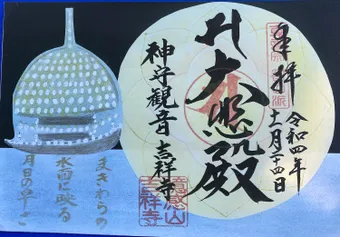 奉拝
令和四年
十一月二十四日
大悲殿
神守観音 吉祥寺
まきわらの
水面に映る
月日の早さ